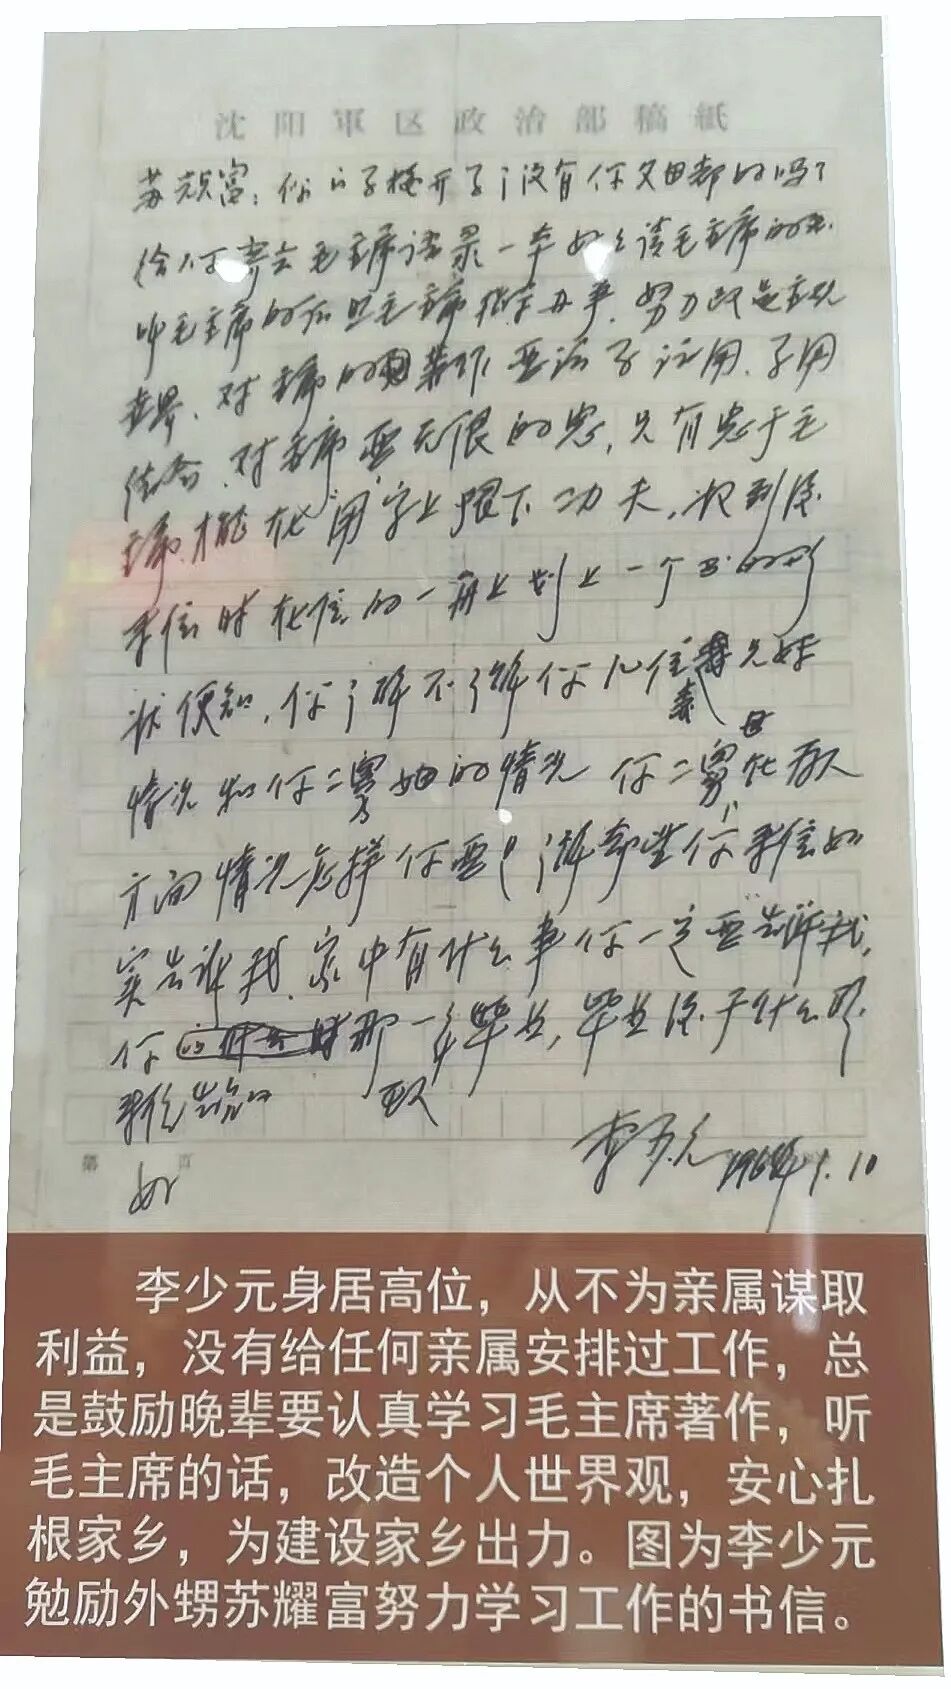 沈阳軍区政治部稿紙
苏耀富：你的了没有你又回部的吗？
给你寄去毛主席语录一本好好读毛主席的书.
听毛主席的话照毛主席指示办事.努力改造主观
世界、对主席的著作要活学活用、学用
结合、对主席要无限的忠，只有忠于毛
主席、才能在“用”字上狠下功夫，收到后
来信时在信的一角上划上一个的形
状便知，你了解不了解你几位表兄妹
情况和你二舅母的情况 你二舅在
方面情况怎样你要了解希望你来信如
实告诉我、家中有什么事你一定要告诉我，
你那一年毕业，毕业后干什么
来信告知 致
李少元 196 .10
第 页
好
李少元身居高位，从不为亲属谋取
利益，没有给任何亲属安排过工作，总
是鼓励晚辈要认真学习毛主席著作，听
毛主席的话，改造个人世界观，安心扎
根家乡，为建设家乡出力。图为李少元
勉励外甥苏耀富努力学习工作的书信。